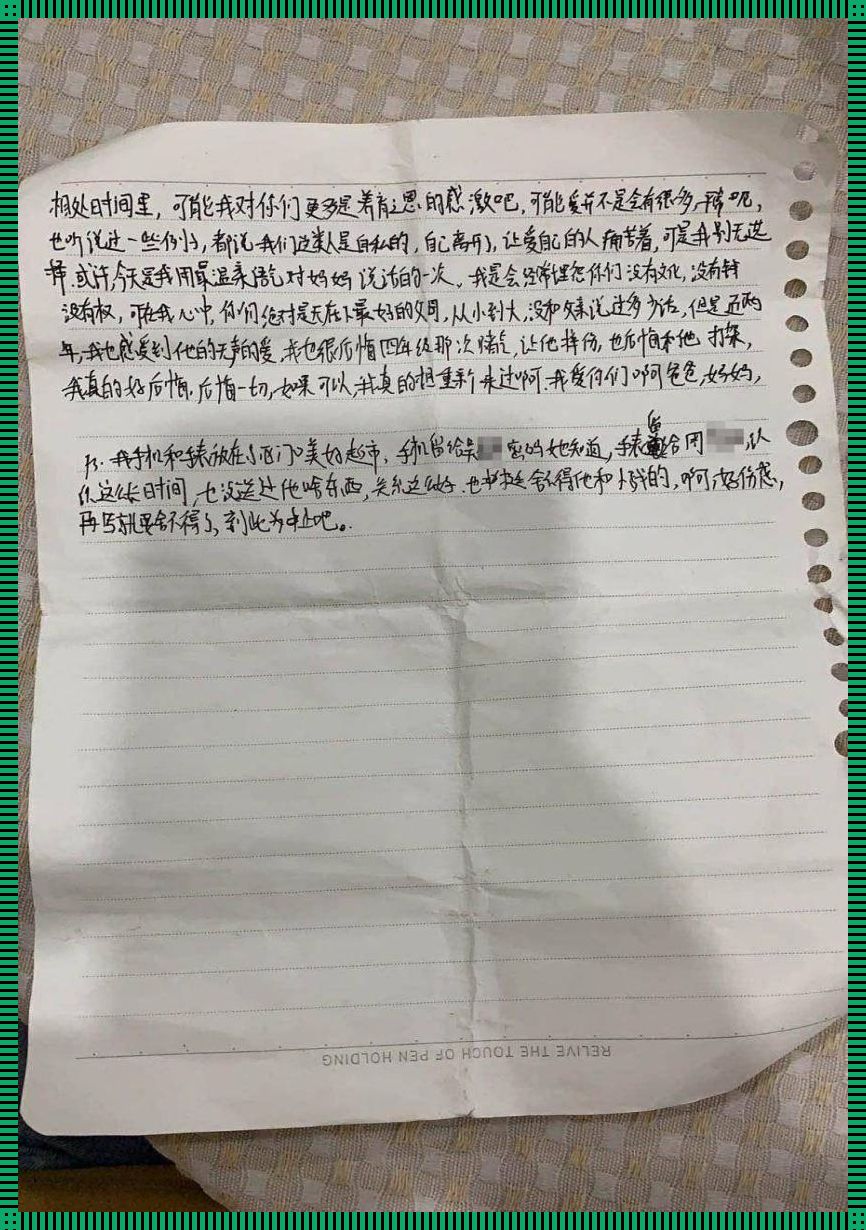 相处时间里，可能我对你们更多是养育之恩的感激吧，可能爱并不是会有很多，唉呢，
也听说过一些例子，都说我们这类人是自私的，自己离开了，让爱自己的人痛苦着，可是我别无选
择.或许，今天是我用最温柔语气对妈妈说话的一次。我是会经常埋怨你们没有文化，没有钱
没有权，可在我心中，你们绝对是天在下最好的父母，从小到大，没和父亲说过多少话，但是近两
年，我也感受到他的无声的爱，我也很后悔四年级那次赌气，让他摔伤，也后悔和他打架，
我真的好后悔.后悔一切，如果可以，我真的想重新来过啊.我爱你们啊爸爸，妈妈，
Ps.我手机和手表放在小西门口美好超市，手机留给吴 密码她知道，手表留给周 ，认
识这么长日时间，也没送过他啥东西，关系这么好.也 舍不得他和 的，啊，好伤感，
再写就要舍不得了，到此为止吧。
RELIVE THE TOUCH OF PEN HOLDING